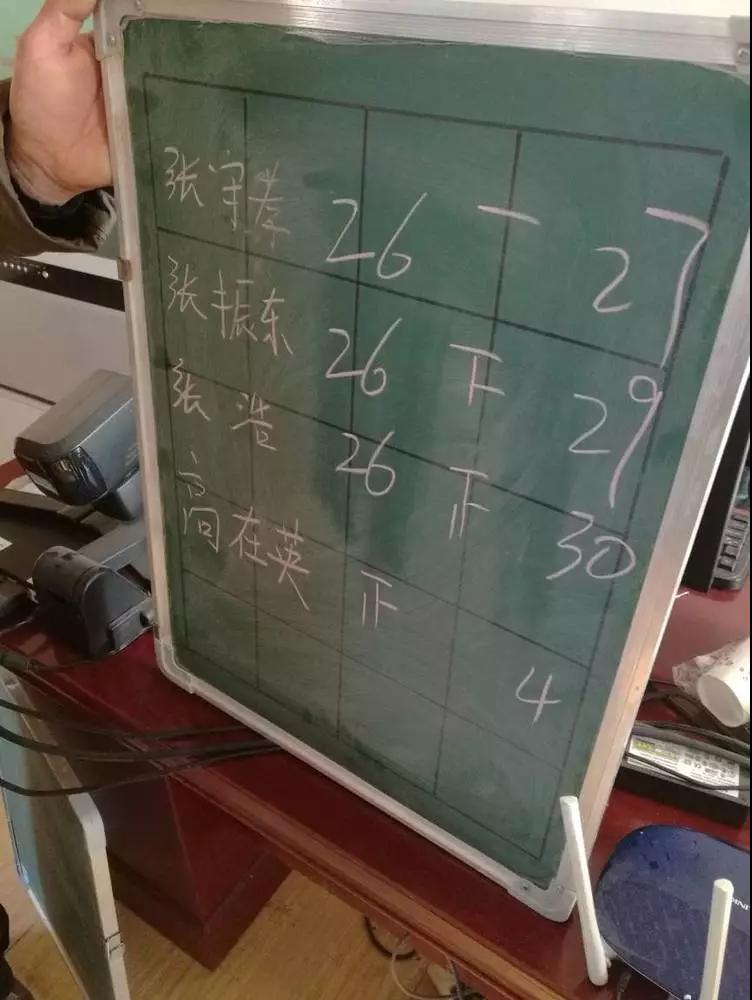 张守孝 26 一 27
张振东 26 下 29
张浩 26 正 30
高在英 正 4